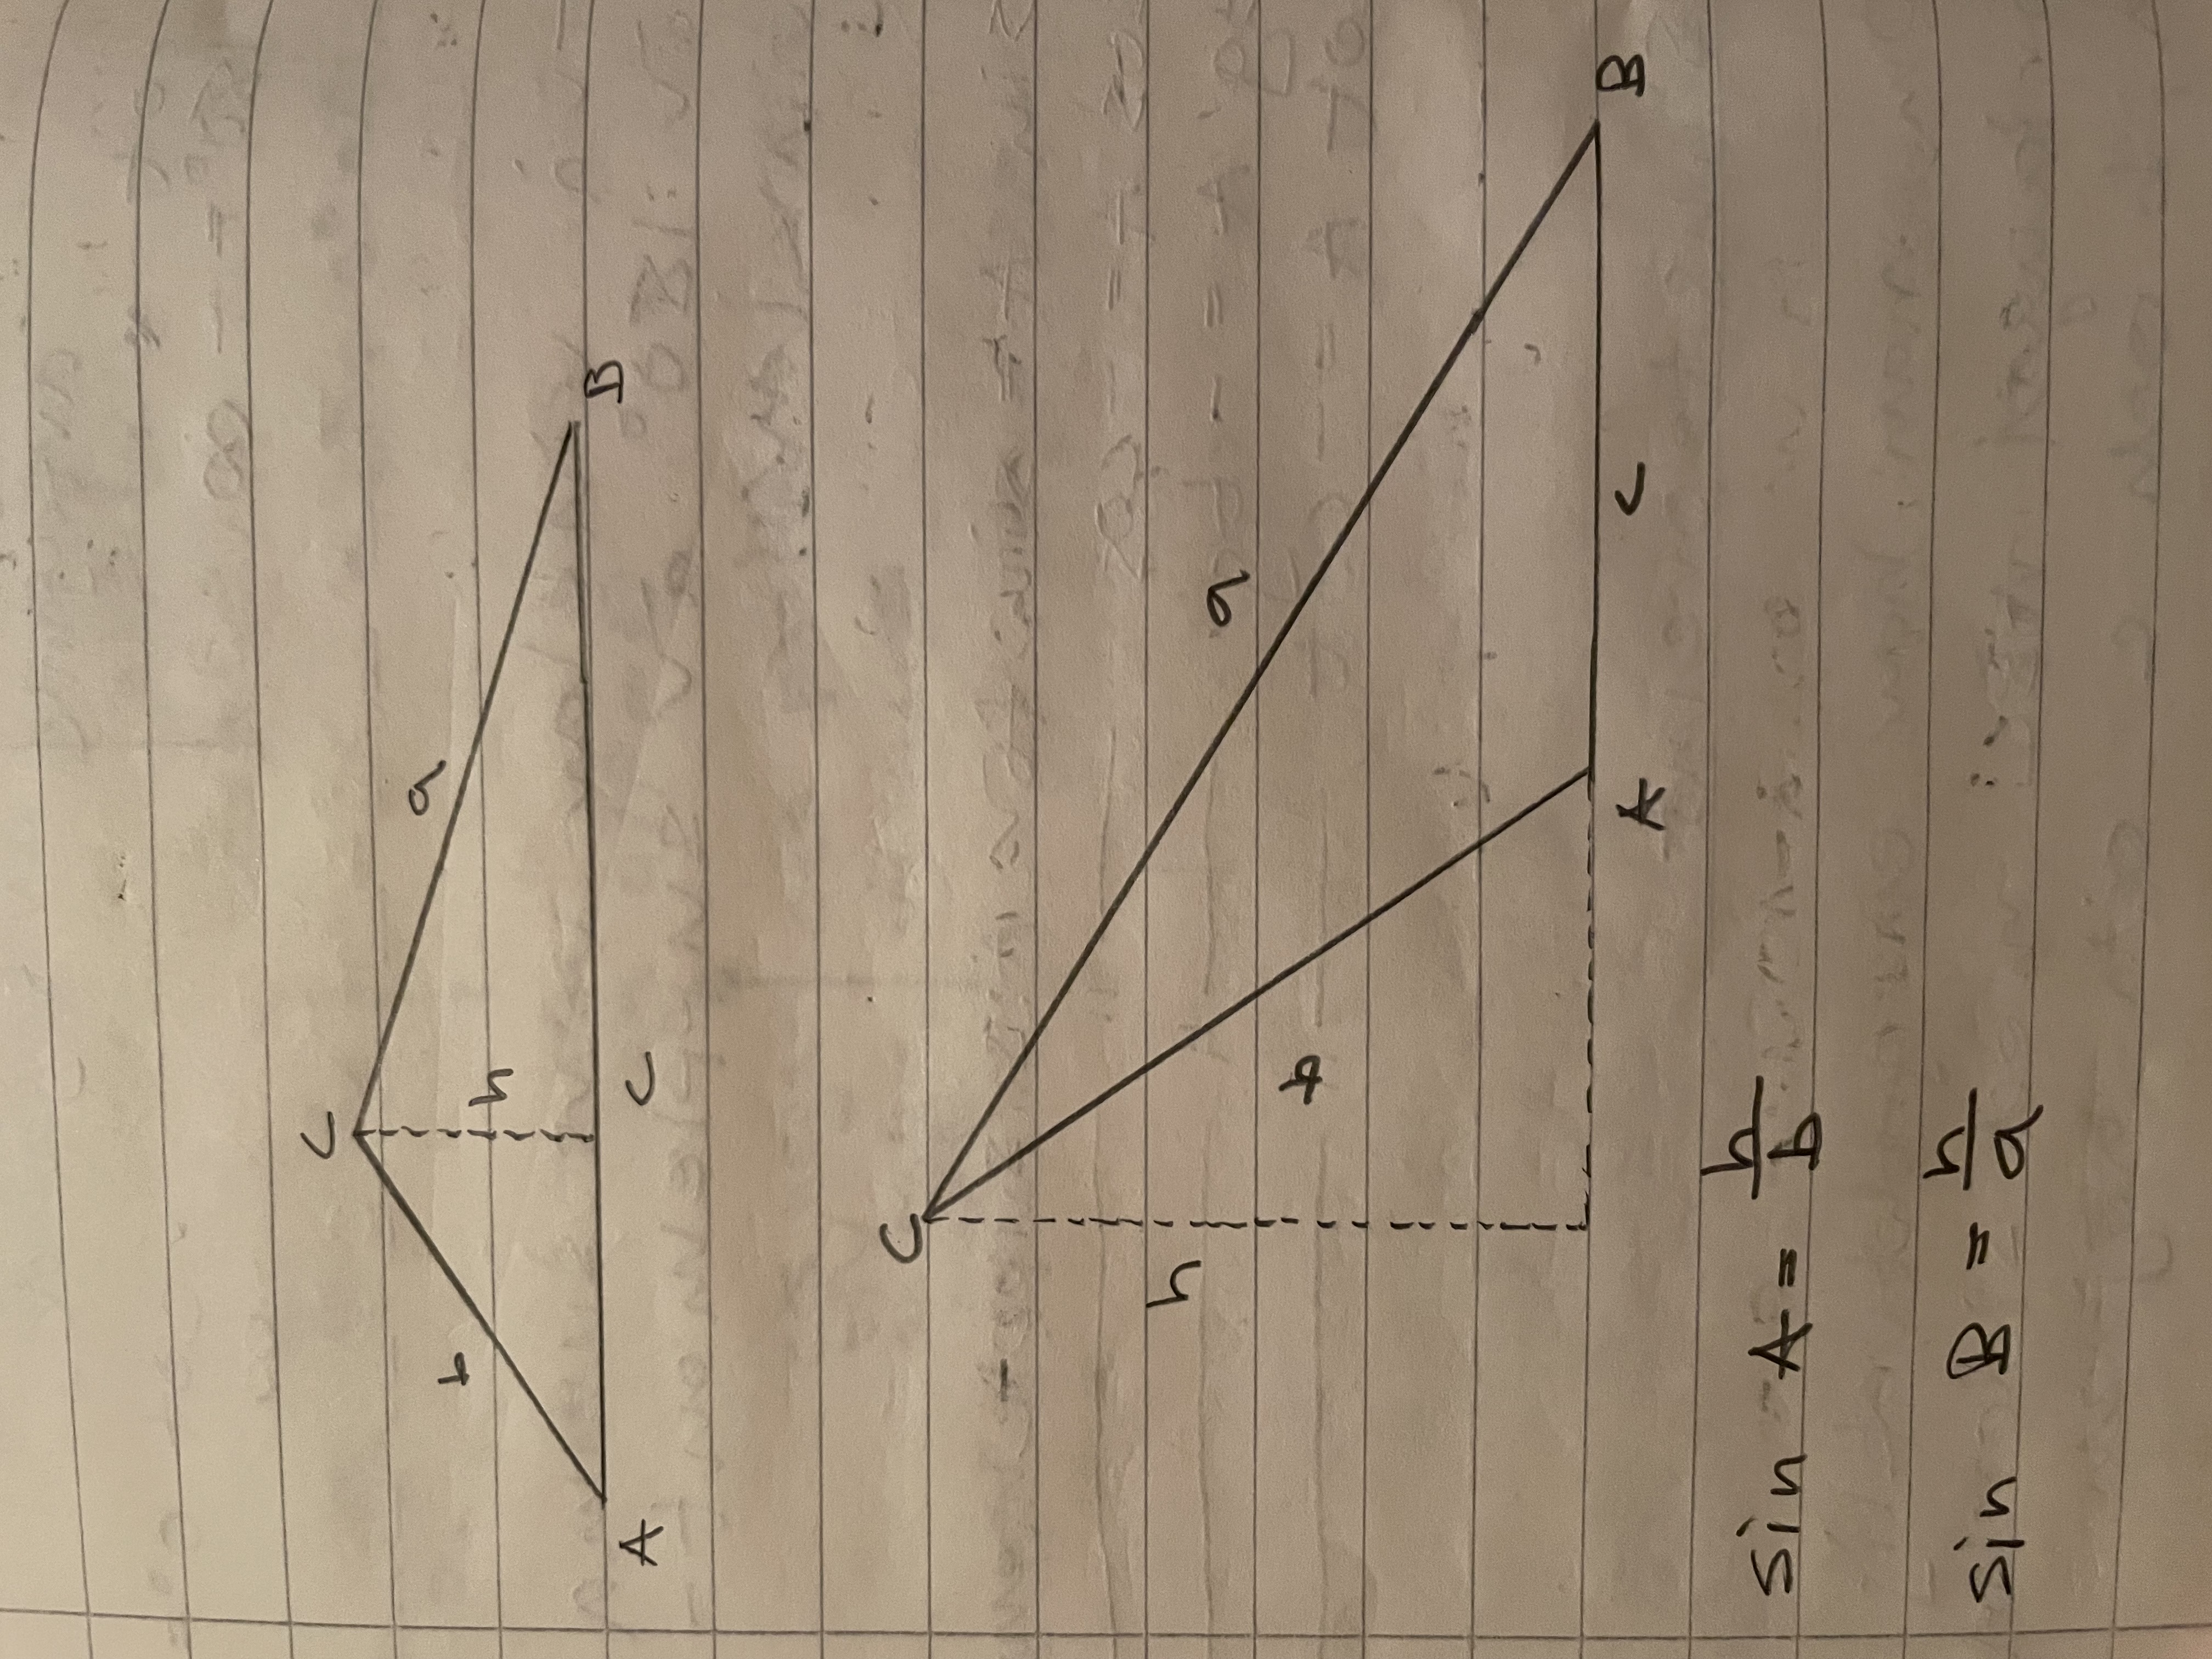 C
b
a
h
A
C
B
C
h
a
b
A
c
B
sin A = h/b
sin B = h/a